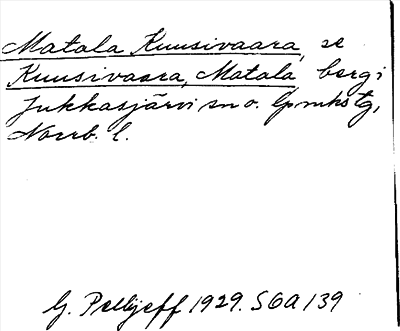 Matala Kuusivaara, se
Kuusivaara, Matala, berg i
Jukkasjärvi sn o. lpmkstg,
Norrb. l.
G. Pellijeff 1929. SOA 139